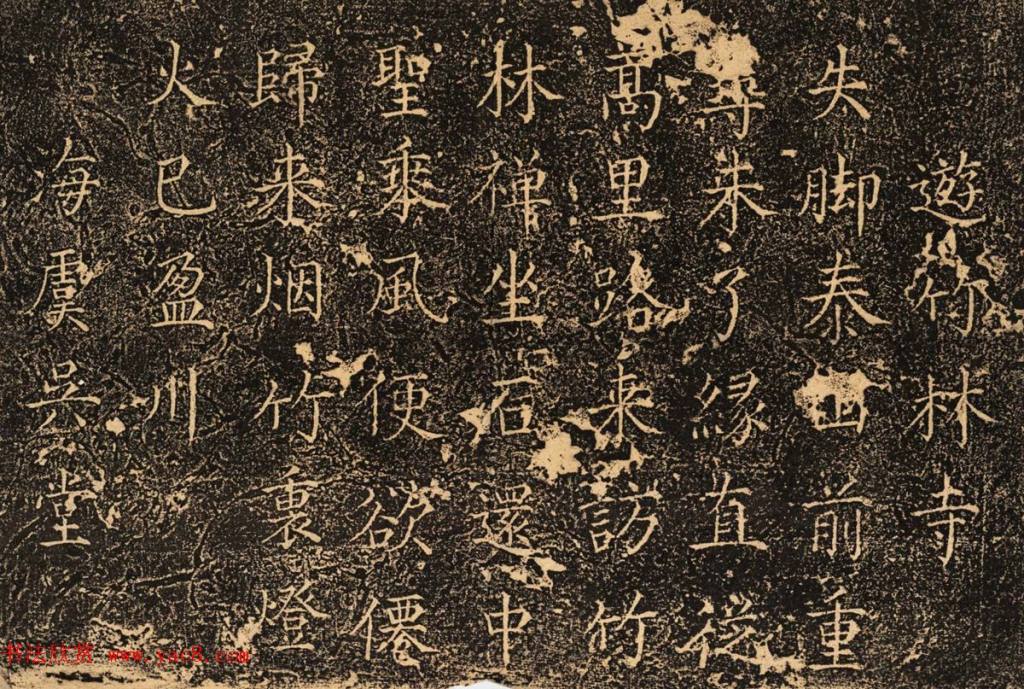 遊竹林寺
失脚泰山前重
尋未了緣直從
蒿里路来訪竹
林禅坐石還中
聖乘風便欲僊
歸来烟竹裏燈
火已盈川
海虞吳堂
书法欣赏 www.yac8.com